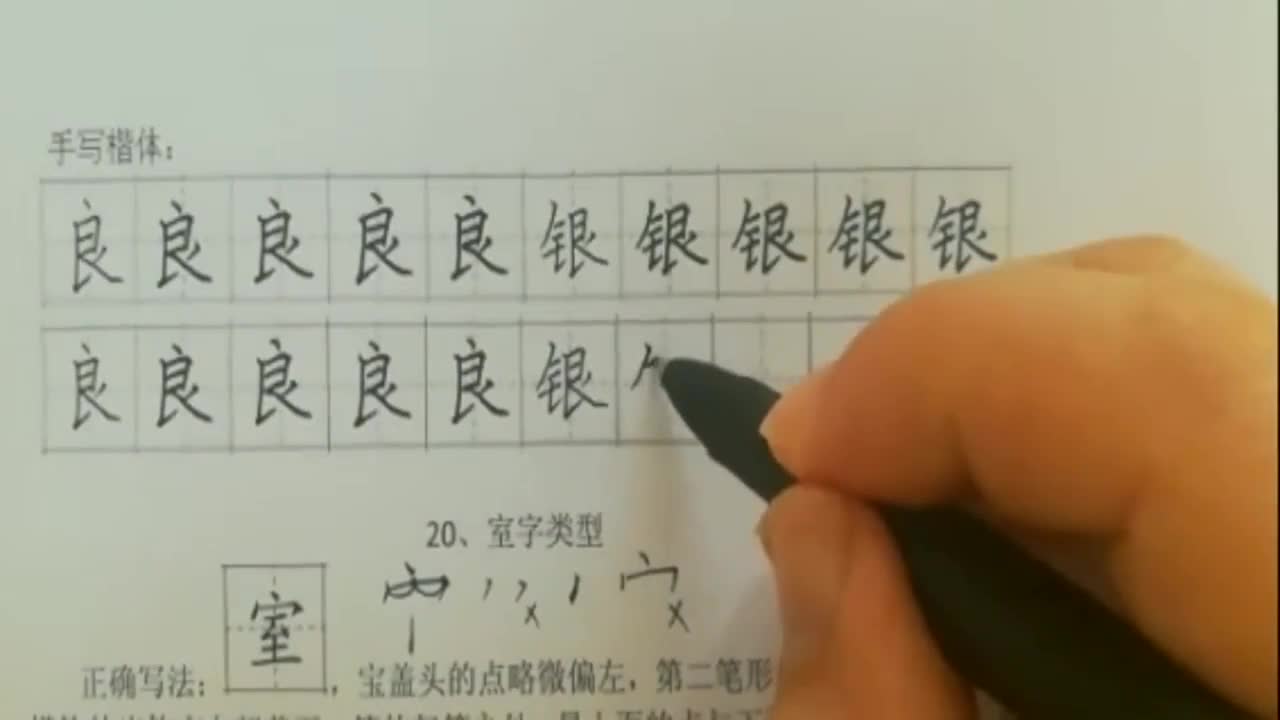 手写楷体：
良良良良良银银银银银
良良良良良银
20、室字类型
室
正确写法：，宝盖头的点略微偏左，第二笔形